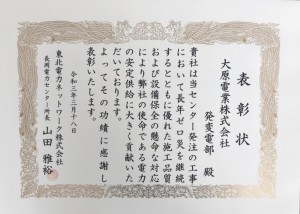 表彰状
大原電業株式会社
発変電部 殿
貴社は当センター発注の工事
において長年ゼロ災を継続
するとともに優れた施工品質
および設備保全の懸命な対応
により弊社の使命である電力
の安定供給に大きく貢献いた
だいております。
よってその功績に感謝し
表彰いたします。
令和三年三月十八日
東北電力ネットワーク株式会社
長岡電力センター所長
山田 雅裕